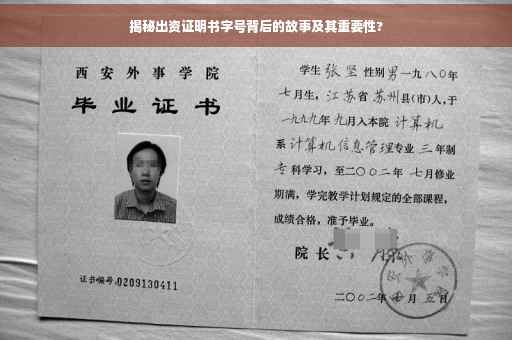 揭秘出资证明书字号背后的故事及其重要性?
西安外事学院
毕业证书
证书编号:0209130411
学生 张坚 性别 男 一九八〇年
七月生,江苏省 苏州县(市)人,于
一九九九年 九月入本院 计算机
系 计算机信息管理专业 三 年制
专科学习,至二〇〇二年 七月修业
期满,学完教学计划规定的全部课程,
成绩合格,准予毕业。
院长
二〇〇二年 月 五日